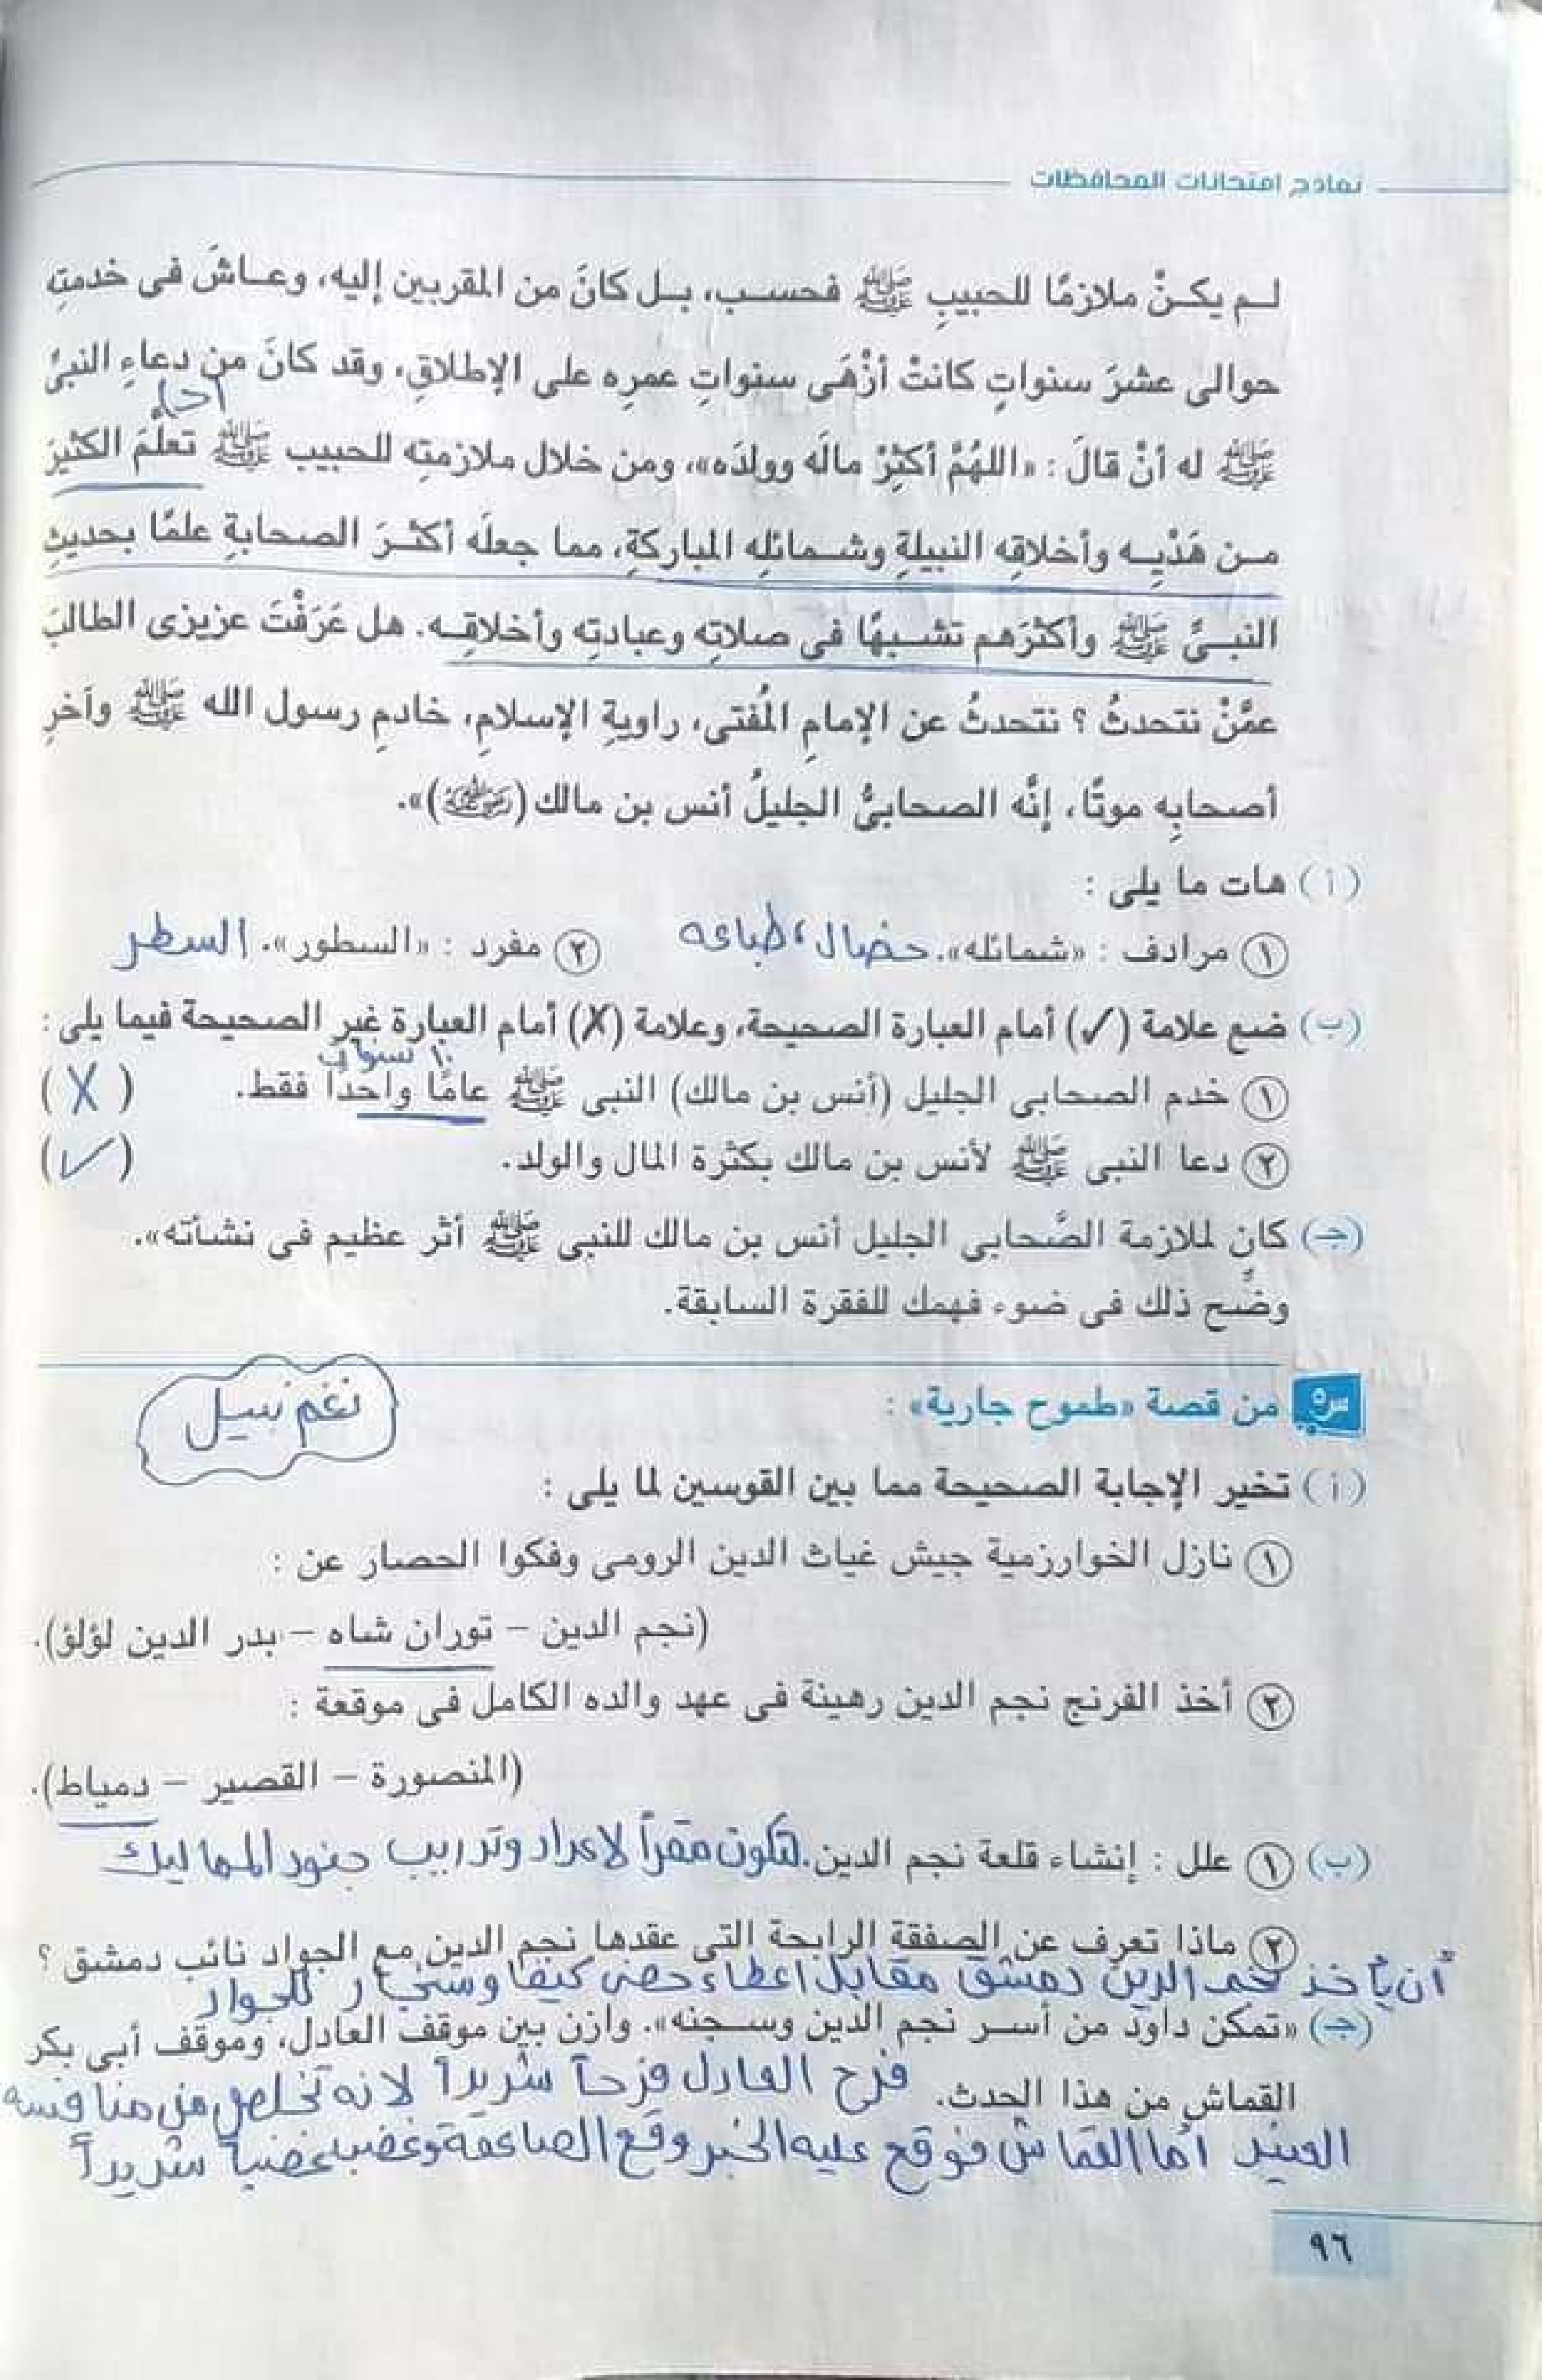 نماذج امتحانات المحافظات
لـم يكـنْ ملازمًا للحبيبِ ﷺ فحسـب، بـل كانَ من المقربين إليه، وعـاشَ فى خدمتِه
حوالى عشرَ سنواتٍ كانتْ أزْهَى سنواتِ عمرِه على الإطلاقِ، وقد كانَ من دعاءِ النبىِّ
ﷺ له أنْ قالَ : «اللهُمَّ أكثِرْ مالَه وولدَه»، ومن خلال ملازمتِه للحبيب ﷺ تعلَّمَ الكثيرَ
مـن هَدْيِـه وأخلاقِه النبيلةِ وشـمائلِه المباركةِ، مما جعلَه أكثـرَ الصحابةِ علمًا بحديثِ
النبـىِّ ﷺ وأكثرَهم تشـبهًا فى صلاتِه وعبادتِه وأخلاقِـه. هل عَرَفْتَ عزيزى الطالبَ
عمَّنْ نتحدثُ ؟ نتحدثُ عن الإمامِ المُفتى، راويةِ الإسلامِ، خادمِ رسول الله ﷺ وآخرِ
أصحابِه موتًا، إنَّه الصحابىُّ الجليلُ أنس بن مالك (رضي الله عنه)».
(أ) هات ما يلى :
١ مرادف : «شمائله». خصال، طباعه ٢ مفرد : «السطور». السطر
(ب) ضع علامة (✓) أمام العبارة الصحيحة، وعلامة (X) أمام العبارة غير الصحيحة فيما يلى :
١٠ سنوات
١ خدم الصحابى الجليل (أنس بن مالك) النبى ﷺ عامًا واحدًا فقط. (X)
٢ دعا النبى ﷺ لأنس بن مالك بكثرة المال والولد. (✓)
(جـ) كان لملازمة الصَّحابى الجليل أنس بن مالك للنبى ﷺ أثر عظيم فى نشأته».
وضِّح ذلك فى ضوء فهمك للفقرة السابقة.
نغم نبيل
من قصة «طموح جارية» :
(أ) تخير الإجابة الصحيحة مما بين القوسين لما يلى :
١ نازل الخوارزمية جيش غياث الدين الرومى وفكوا الحصار عن :
(نجم الدين – توران شاه – بدر الدين لؤلؤ).
٢ أخذ الفرنج نجم الدين رهينة فى عهد والده الكامل فى موقعة :
(المنصورة – القصير – دمياط).
(ب) ١ علل : إنشاء قلعة نجم الدين. لتكون مقراً لاعداد وتدريب جنود المماليك
٢ ماذا تعرف عن الصفقة الرابحة التى عقدها نجم الدين مع الجواد نائب دمشق ؟
أن يأخذ نجم الدين دمشق مقابل اعطاء حصن كيفا وسنجار للجواد
(جـ) «تمكن داود من أسـر نجم الدين وسـجنه». وازن بين موقف العادل، وموقف أبى بكر
القماش من هذا الحدث. فرح العادل فرحاً شديداً لانه تخلص من منافسه
العنيد أما القماش فوقع عليه الخبر وقع الصاعقة وغضب غضباً شديداً
٩٦